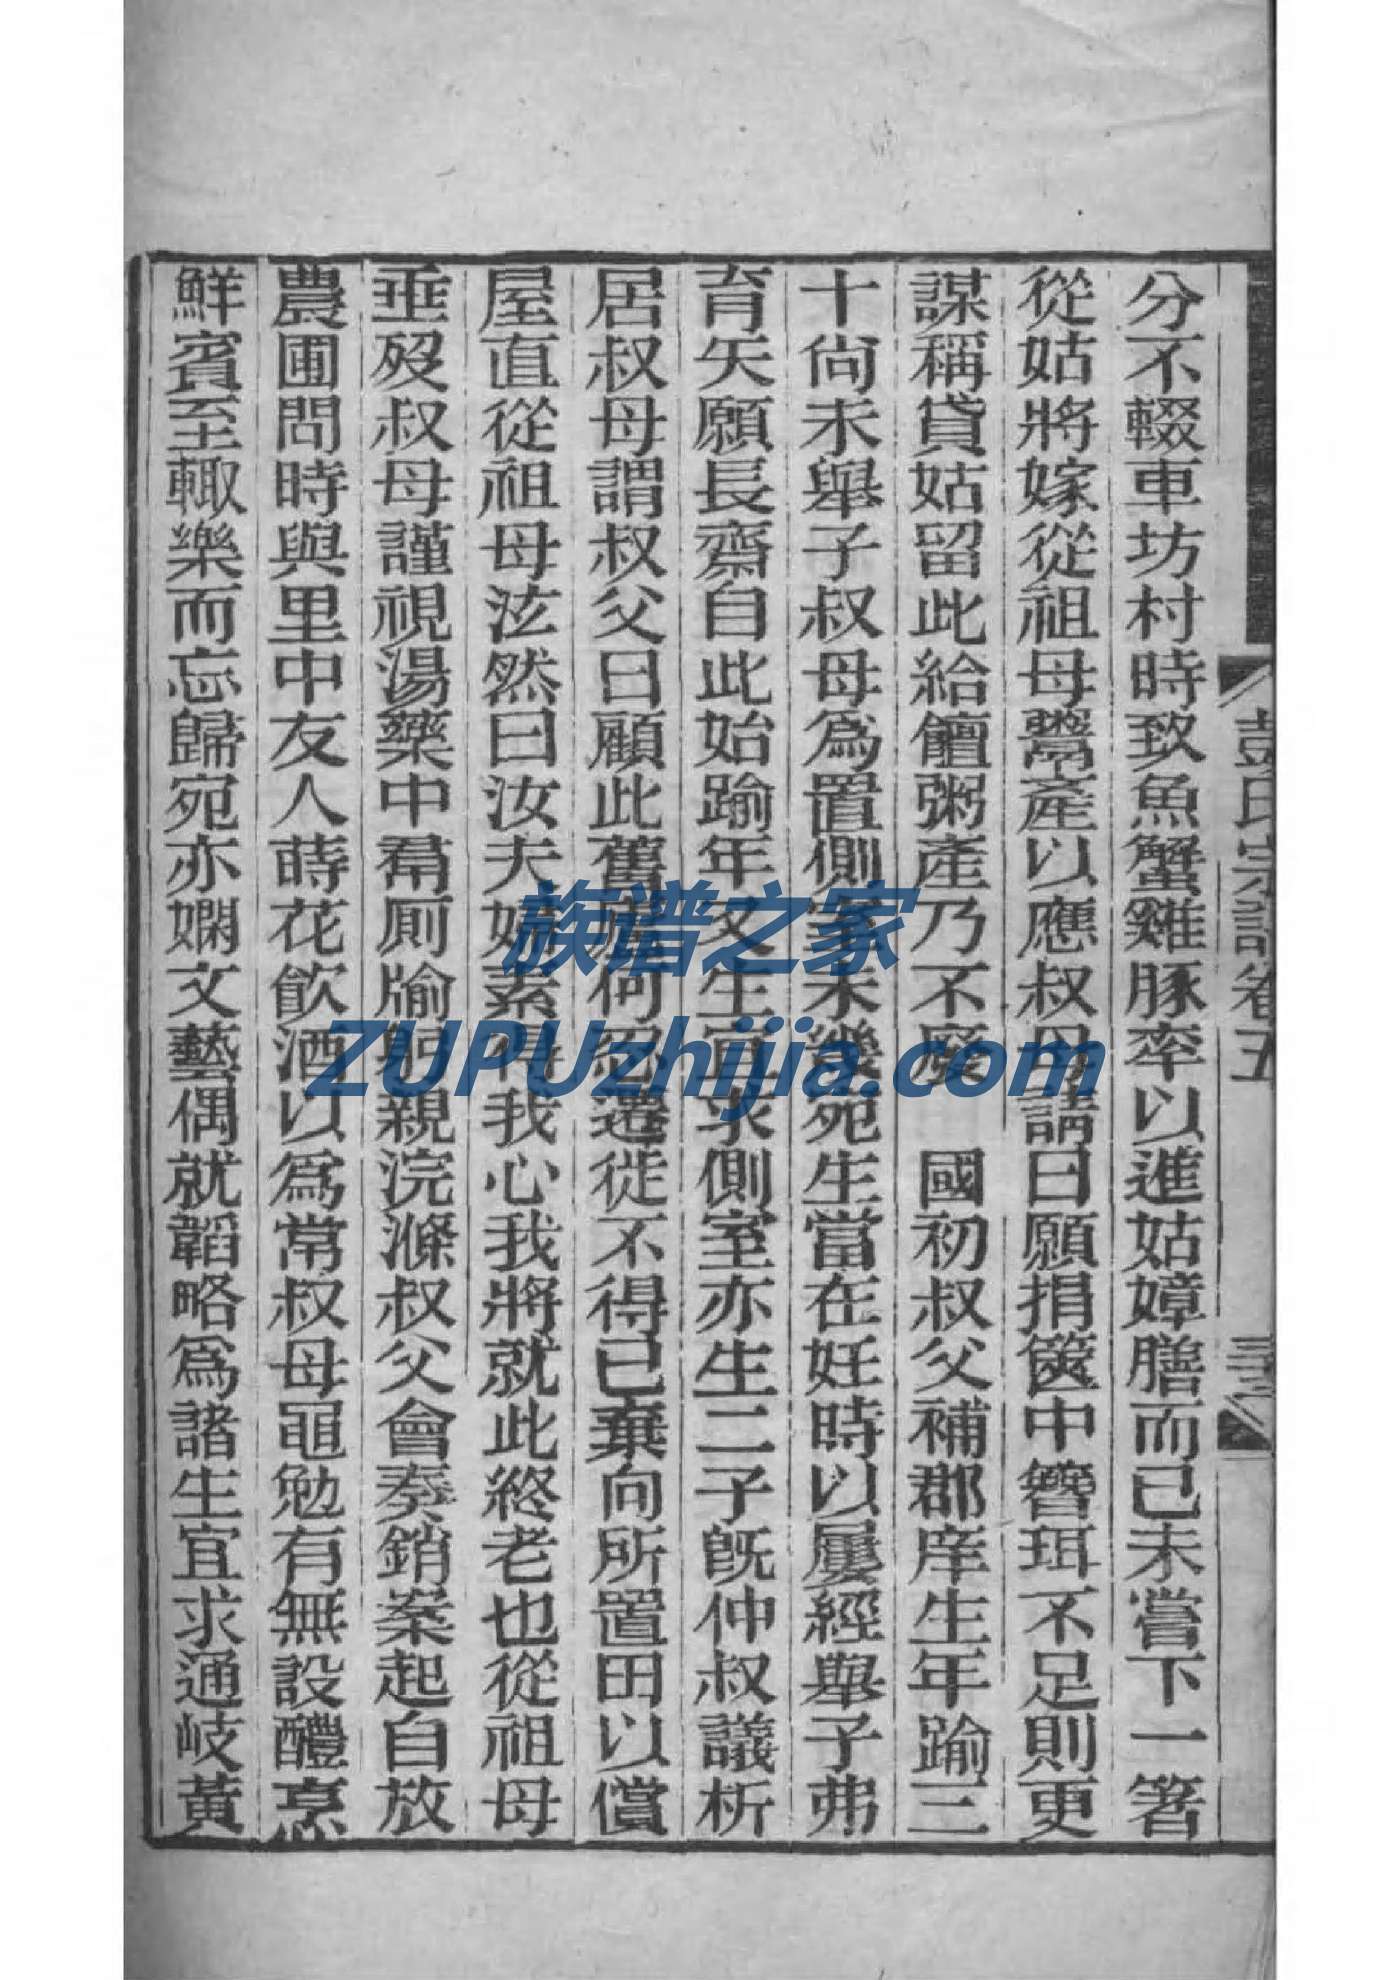 彭氏宗譜卷五
分不輟車坊村時致魚蟹雞豚率以進姑嫜膳而已未嘗下一箸
從姑將嫁從祖母鬻產以應叔母請曰願捐篋中簪珥不足則更
謀稱貸姑留此給饘粥產乃不廢　國初叔父補郡庠生年踰三
十尚未舉子叔母為置側室未幾宛生當在妊時以屢經舉子弗
育矢願長齋自此始踰年又生宜求側室亦生二子旣仲叔議析
居叔母謂叔父曰顧此舊廬何忍遷徙不得已棄向所置田以償
屋直從祖母泫然曰汝夫婦素得我心我將就此終老也從祖母
垂歿叔母謹視湯藥中帬厠牏躬親浣滌叔父會奏銷案起自放
農圃問時與里中友人蒔花飲酒以為常叔母黽勉有無設醴烹
鮮賓至輙樂而忘歸宛亦嫻文藝偶就韜略為諸生宜求通岐黃